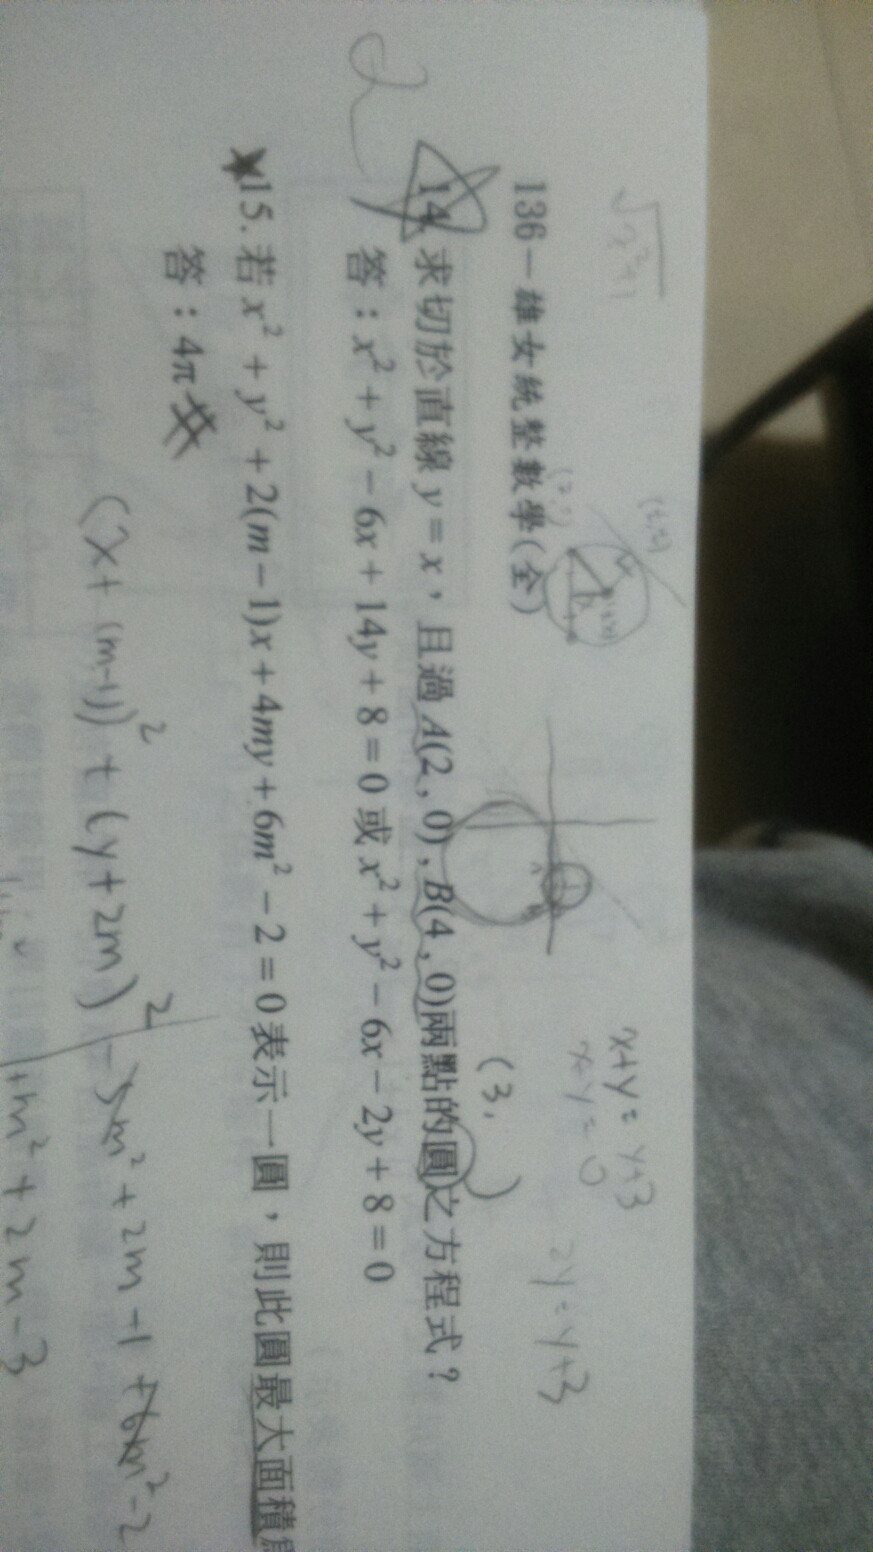 √x²+1
136－雄女統整數學(全)
x+y= y+3
x+y=0
2y=y+3
(3, )
2
14. 求切於直線 y = x，且過 A(2 , 0) , B(4 , 0)兩點的圓之方程式？
答：x² + y² − 6x + 14y + 8 = 0 或 x² + y² − 6x − 2y + 8 = 0
15. 若 x² + y² + 2(m − 1)x + 4my + 6m² − 2 = 0 表示一圓，則此圓最大面積
答：4π
(x+(m-1))² + (y+2m)² -5m² + 2m -1 +6m² -2
+m² + 2m -3